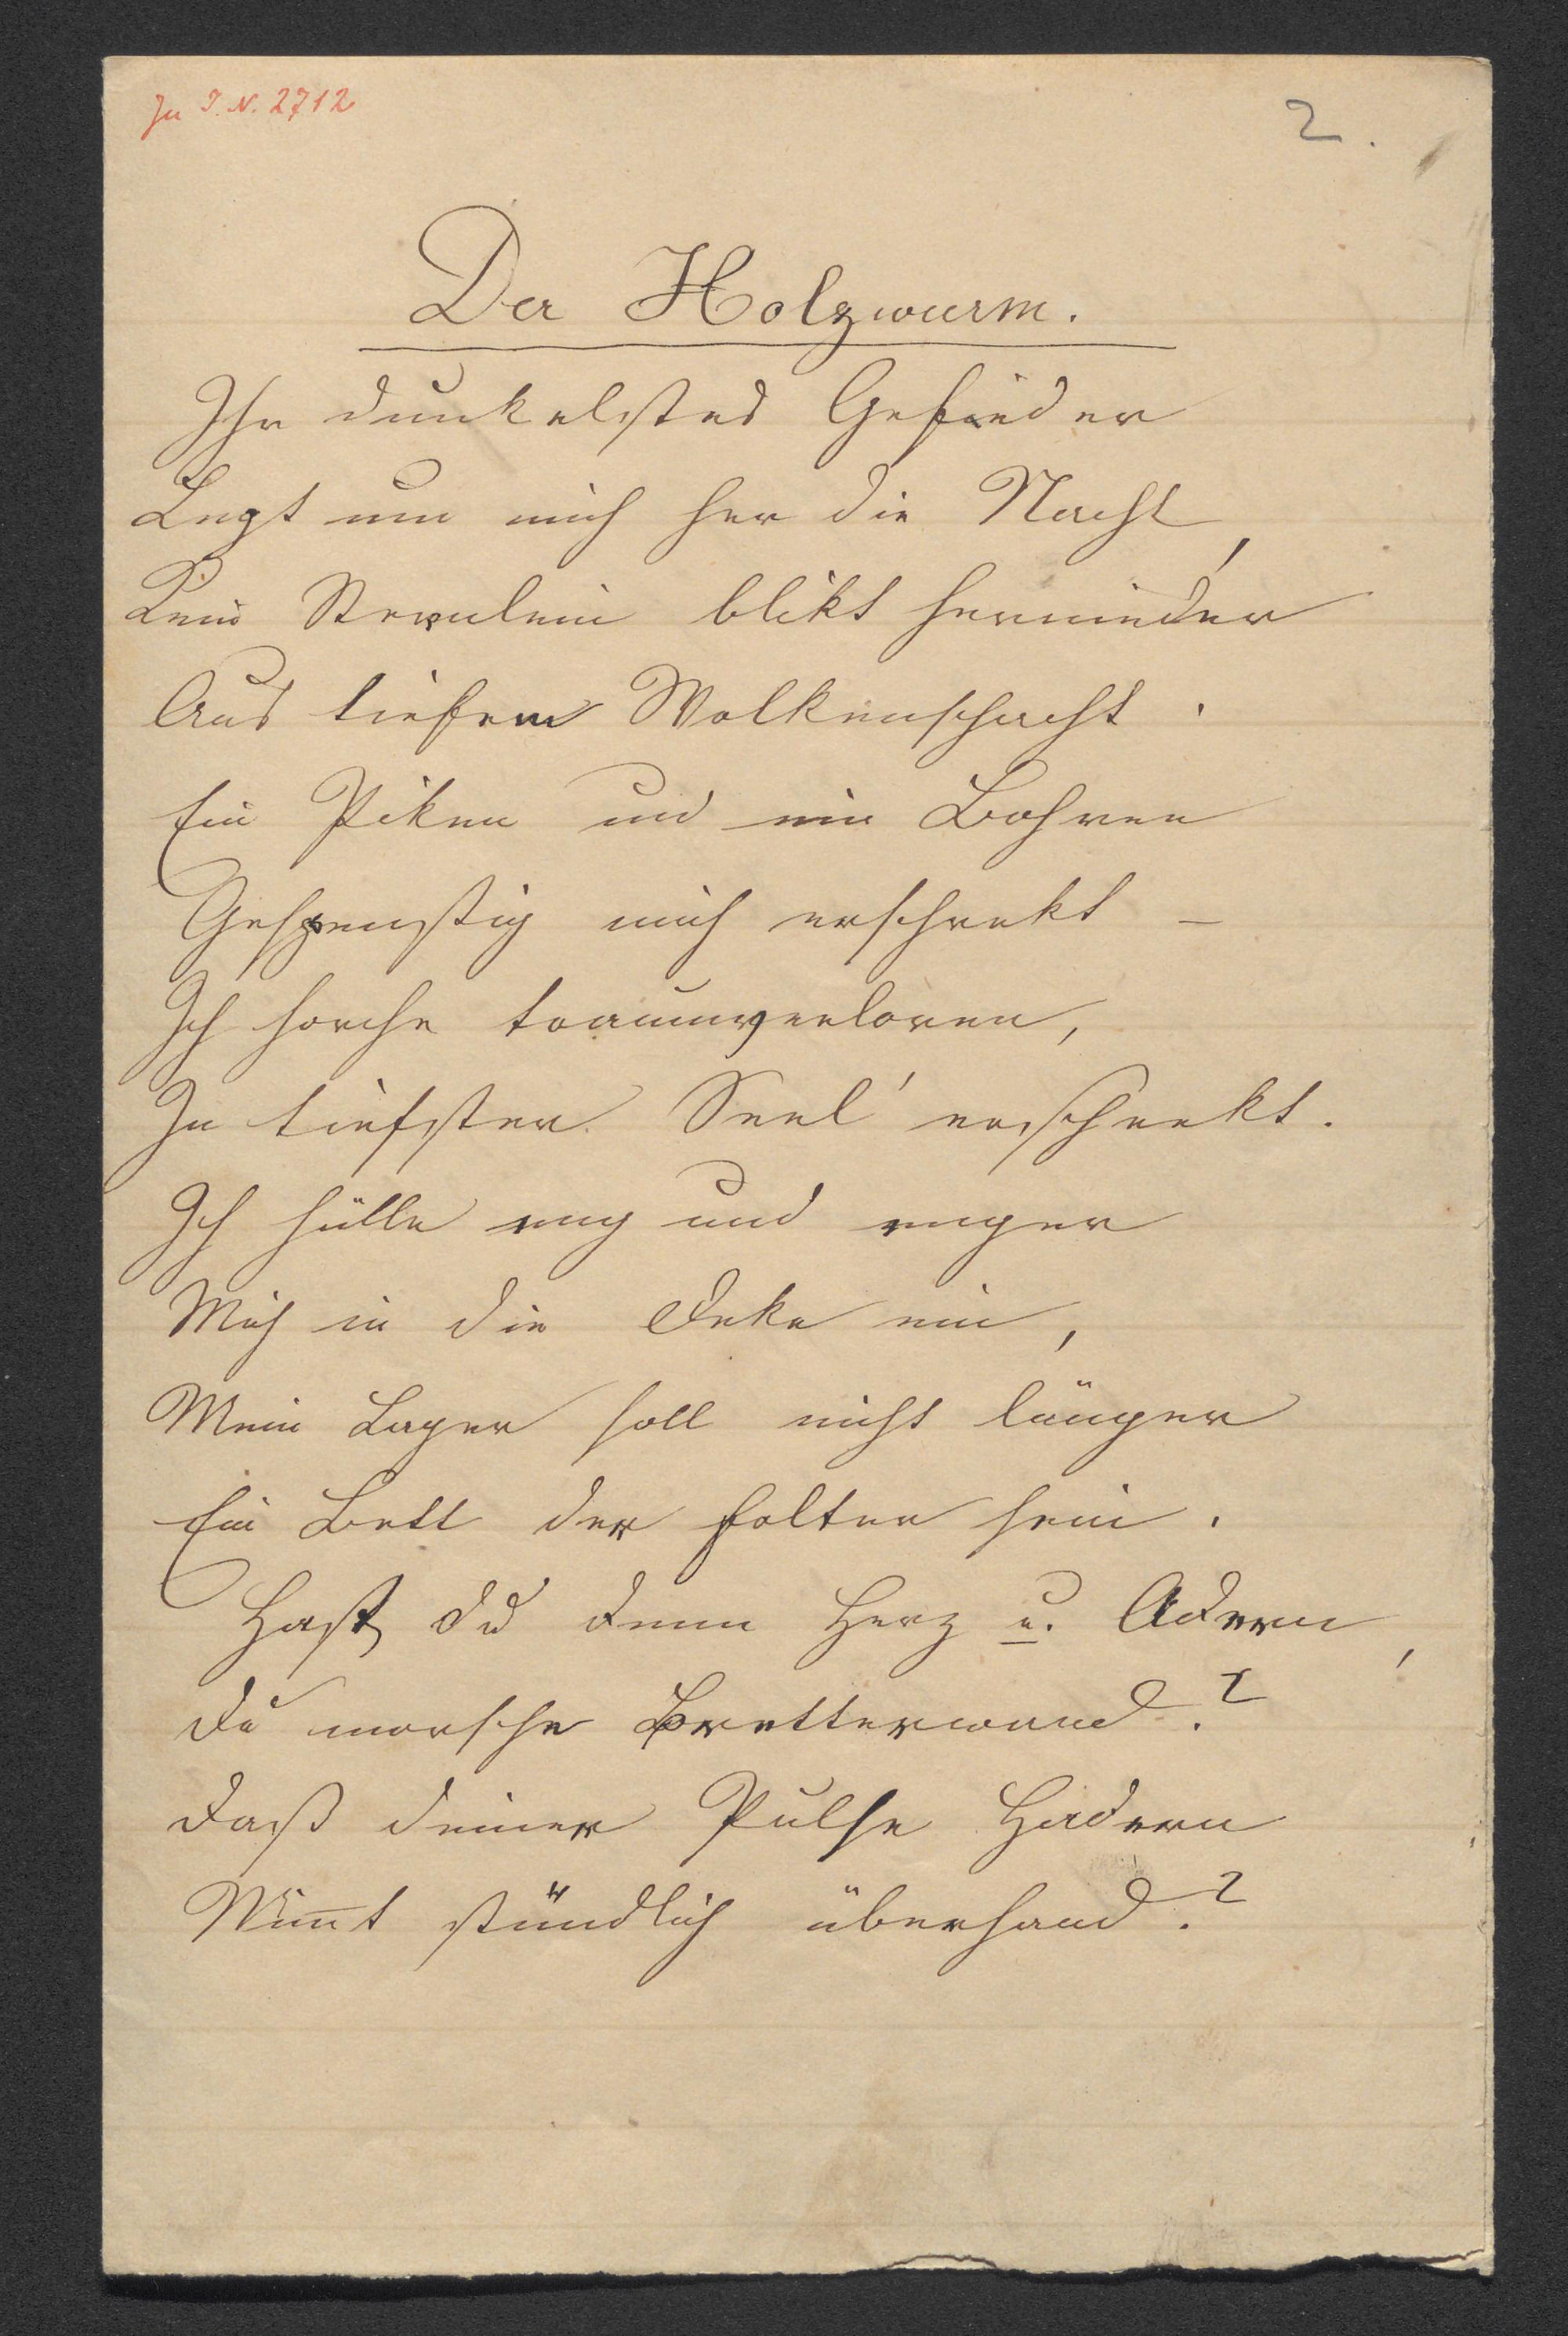 Zu I.N. 2712
2.
Der Holzwurm.
Ihr dunkelstes Gefieder
Legt um mich her die Nacht,
Kein Sternlein blikt hernieder
Aus tiefem Wolkenschacht.
Ein Piken und ein Bohren
Gespenstig mich erschrekt –
Ich horche traumverloren,
In tiefster Seel' erschrekt.
Ich hülle eng und enger
Mich in die Deke ein,
Mein Lager soll nicht länger
Ein Bett der Folter sein.
Hast du denn Herz u. Adern,
Du morsche Bretterwand?
Daß deiner Pulse Hadern
Nim̅t stündlich überhand?